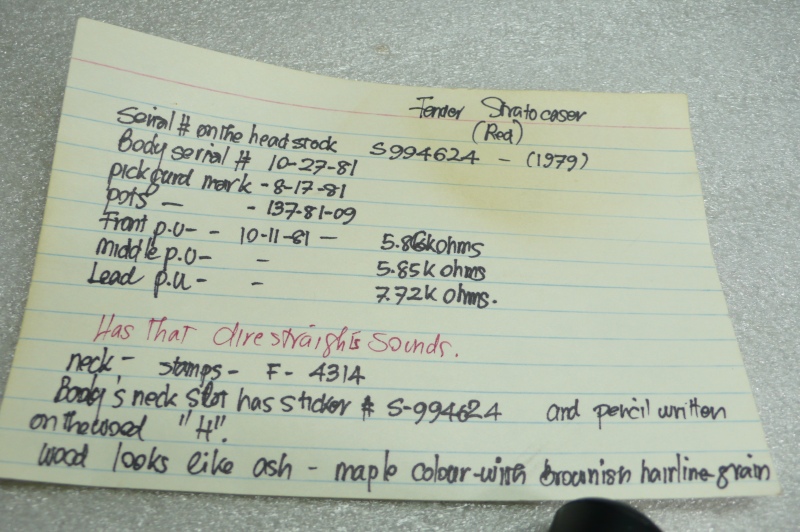 Fender Stratocaser
(Red)
Seiral # on the headstock S994624 - (1979)
Body serial # 10-27-81
pickgurd mark - 8-17-81
pots - - 137-81-09
Front p.u - - 10-11-81 - 5.86kohms
middle p.u - - 5.85K ohms
Lead p.u - - 7.72K ohms.
Has That dire straights sounds.
neck - stamps - F - 4314
Body's neck slot has sticker # S-994624 and pencil written
on the wood "H".
wood looks like ash - maple colour-with brownish hairline-grain